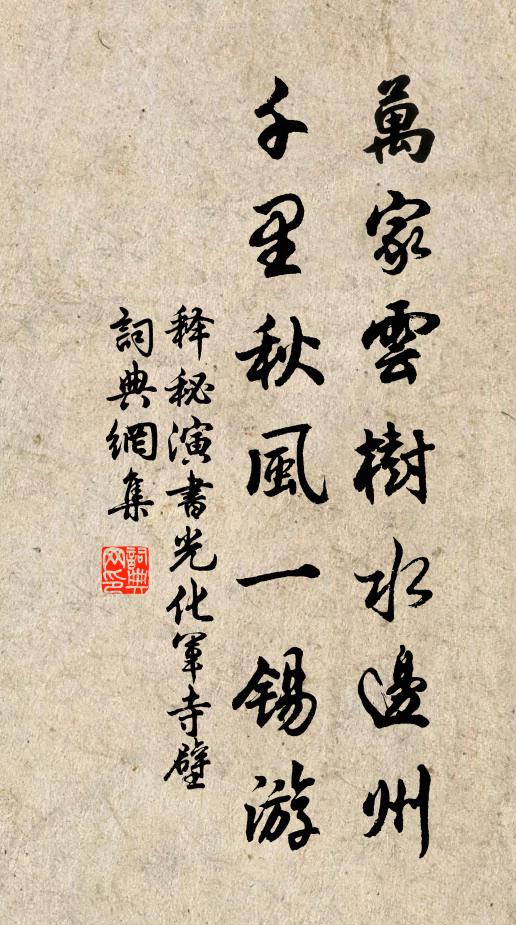 萬家雲樹水邊州
千里秋風一錫游
释秘演書光化軍寺壁
詞典網集
詞典网印